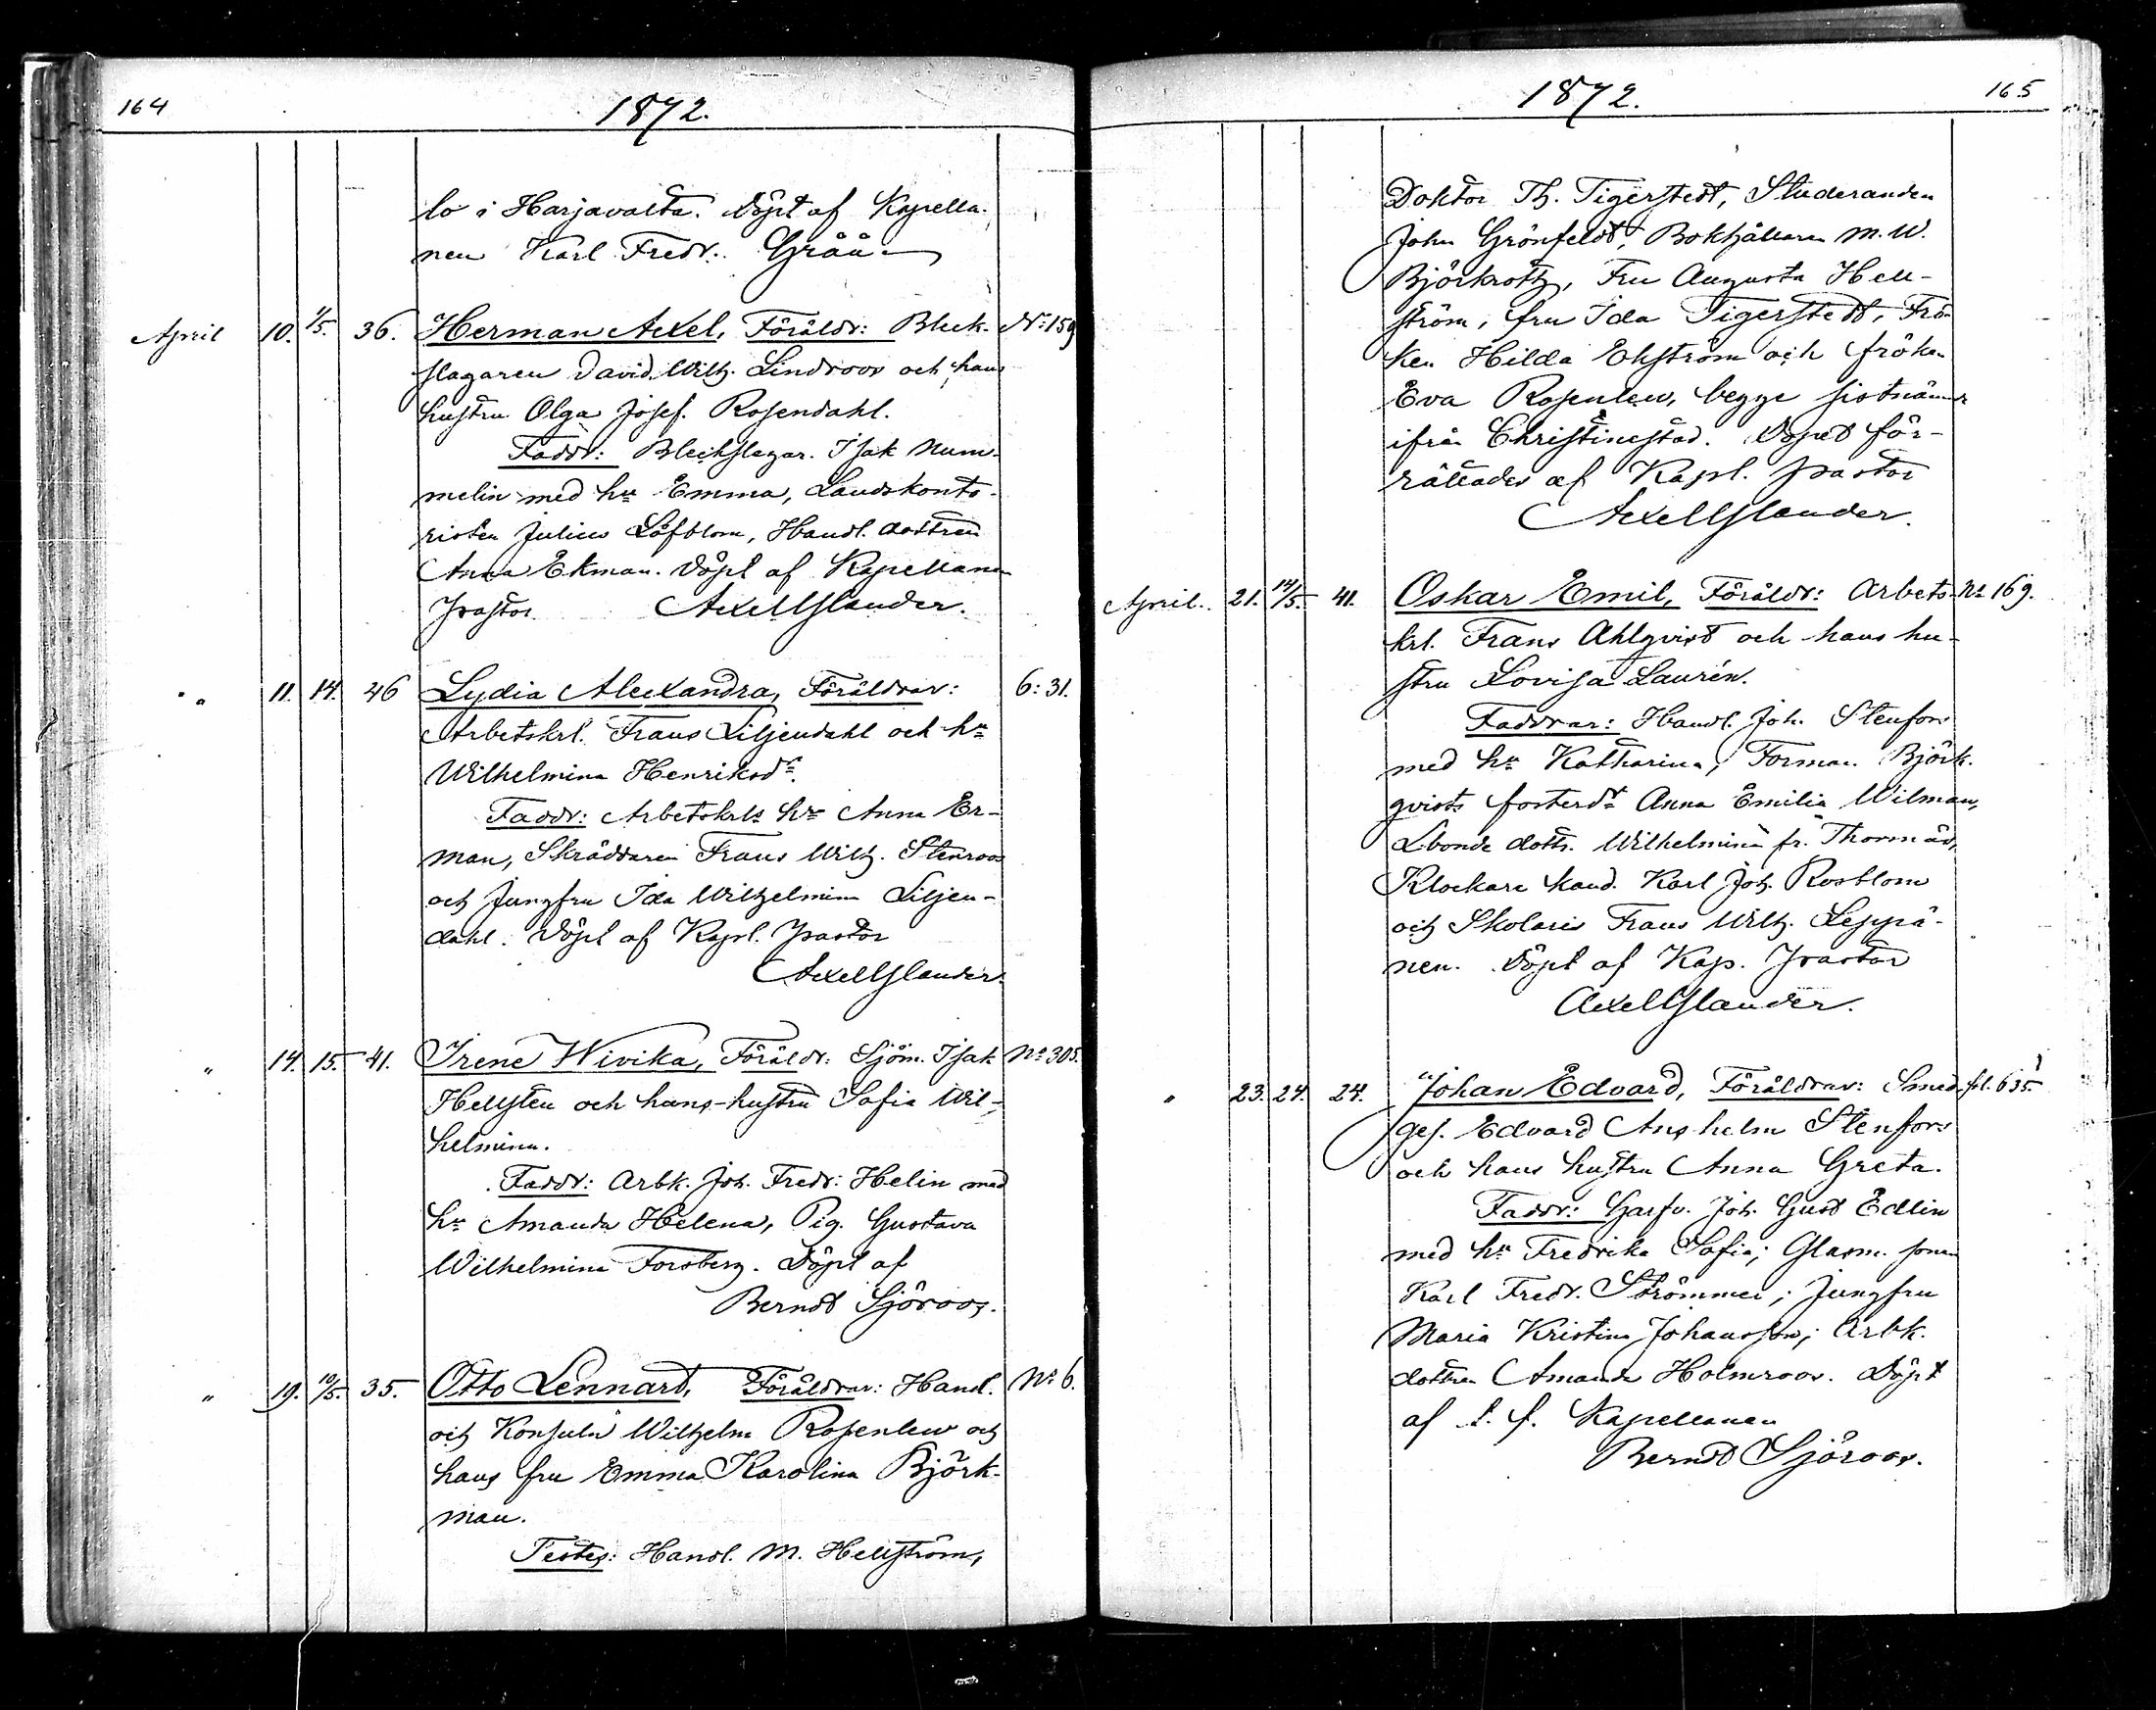 164
1872.
lo i Harjavalta. Döpt af Kapella-
nen Karl Fredr. Gråå
April 10. 1/5. 36. Herman Axel, Föräldr: Bleck- No: 159
slagaren David Wilh. Lindroos och hans
hustru Olga Josef. Rosendahl.
Faddr: Bleckslagar. Isak Num-
melin med hu Emma, Landskonto-
risten Julius Löfblom, Handl. dottren
Anna Ekman. Döpt af Kapellanen
Pastor Axel Islander.
" 11. 14. 46 Lydia Alexandra, Föräldrar: 6:31.
Arbetskrl. Frans Liljendahl och hu
Wilhelmina Henriksdr.
Faddr: Arbetskrls hu Anna Er-
man, Skräddaren Frans Wilh. Stenroos
och Jungfru Ida Wilhelmina Liljen-
dahl. Döpt af Kapl. Pastor
Axel Islander.
" 14. 15. 41. Irene Wivika, Föräldr: Sjöm. Isak No 305.
Hellsten och hans hustru Sofia Wil-
helmina.
Faddr: Arbk. Joh. Fredr: Helin med
hu Amanda Helena, Pig. Gustava
Wilhelmina Forsberg. Döpt af
Berndt Sjöroos.
" 19. 10/5. 35. Otto Lennart, Föräldrar: Handl. No 6.
och Konsuln Wilhelm Rosenlew och
hans fru Emma Karolina Björk-
man.
Testes: Handl. M. Hellström,
1872.
165
Doktor Th. Tigerstedt, Studeranden
John Grönfeldt, Bokhållaren M. W.
Björkroth, Fru Augusta Hell-
ström, fru Ida Tigerstedt, Frö-
ken Hilda Ekström och fröken
Eva Rosenlew, begge sistnämnde
ifrån Christinestad. Dopet för-
rättades af Kapl. Pastor
Axel Islander.
April. 21. 14/5. 41. Oskar Emil, Föräldr: Arbets- No 169.
krl. Frans Ahlqvist och hans hu-
stru Lovisa Laurén.
Faddrar: Handl. Joh. Stenfors
med hu Katharina, Forman Björk-
qvists fosterdr Anna Emilia Wilman,
Lbonde dottr. Wilhelmina fr.
Klockare kand. Karl Joh. Rosblom
och Skolaris Frans Wilh. Leppä-
nen. Döpt af Kap. Pastor
Axel Islander.
" 23. 24. 24. Johan Edvard, Föräldrar: Smed fol. 635.
ges. Edvard Anshelm Stenfors
och hans hustru Anna Greta.
Faddr: Garfv. Joh. Gust Edlin
med hu Fredrika Sofia; Glasm. sonen
Karl Fredr. Strömmer; Jungfru
Maria Kristina Johansson; Arbk.
dottren Amanda Holmroos. Döpt
af t. f. Kapellanen
Berndt Sjöroos.